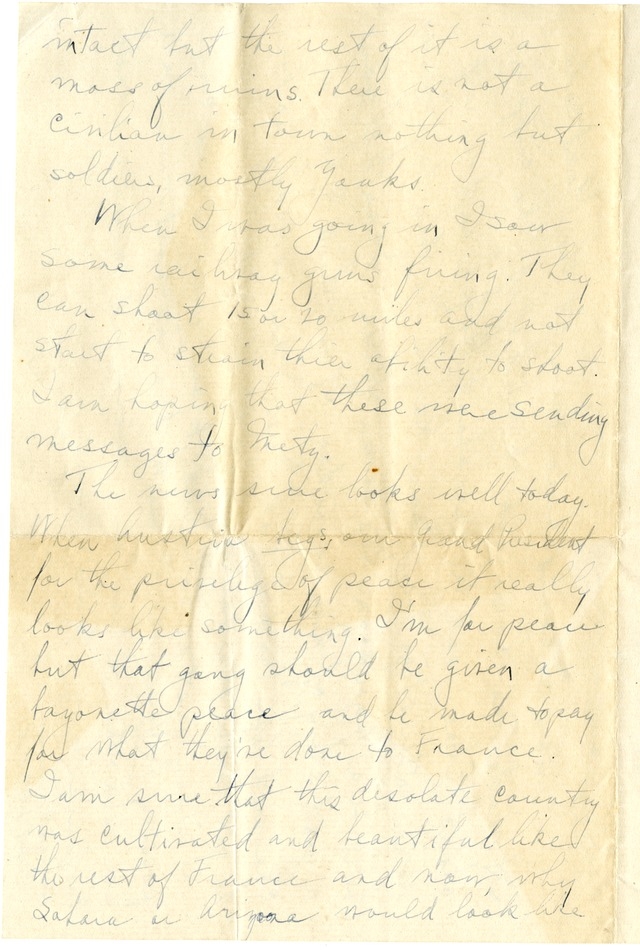 intact but the rest of it is a
mass of ruins. There is not a
civilian in town nothing but
soldiers, mostly Yanks.
When I was going in I saw
some railway guns firing. They
can shoot 15 or 20 miles and not
start to strain thier ability to shoot.
I am hoping that these were sending
messages to Metz.
The news sure looks well today.
When Austria begs, our Grand President
for the privilege of peace it really
looks like something. I'm for peace
but that gang should be given a
bayonette peace and be made to pay
for what they've done to France.
I am sure that this desolate country
was cultivated and beautiful like
the rest of France and now, why
Sahara or Arizona would look like